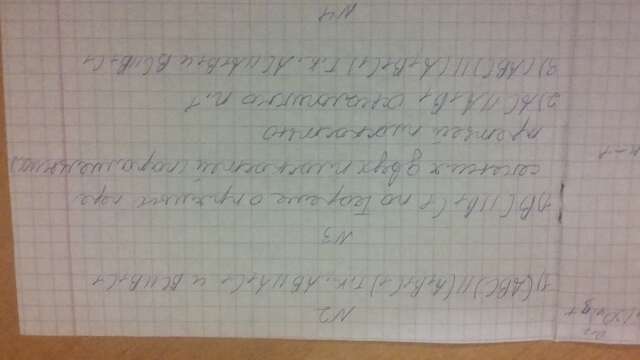 N2
1) (ABC) || (A₁B₁C₁) т.к. AB || A₁C₁ и BC || B₁C₁
N3
1) BC || B₁C₁ по теореме о прямых пере
сечения двух плоскостей (параллельных)
третьей плоскостью
2) AC || A₁B₁ аналогично п.1
3) (ABC) || (A₁B₁C₁) т.к. AC || A₁B₁ и BC || B₁C₁
N4